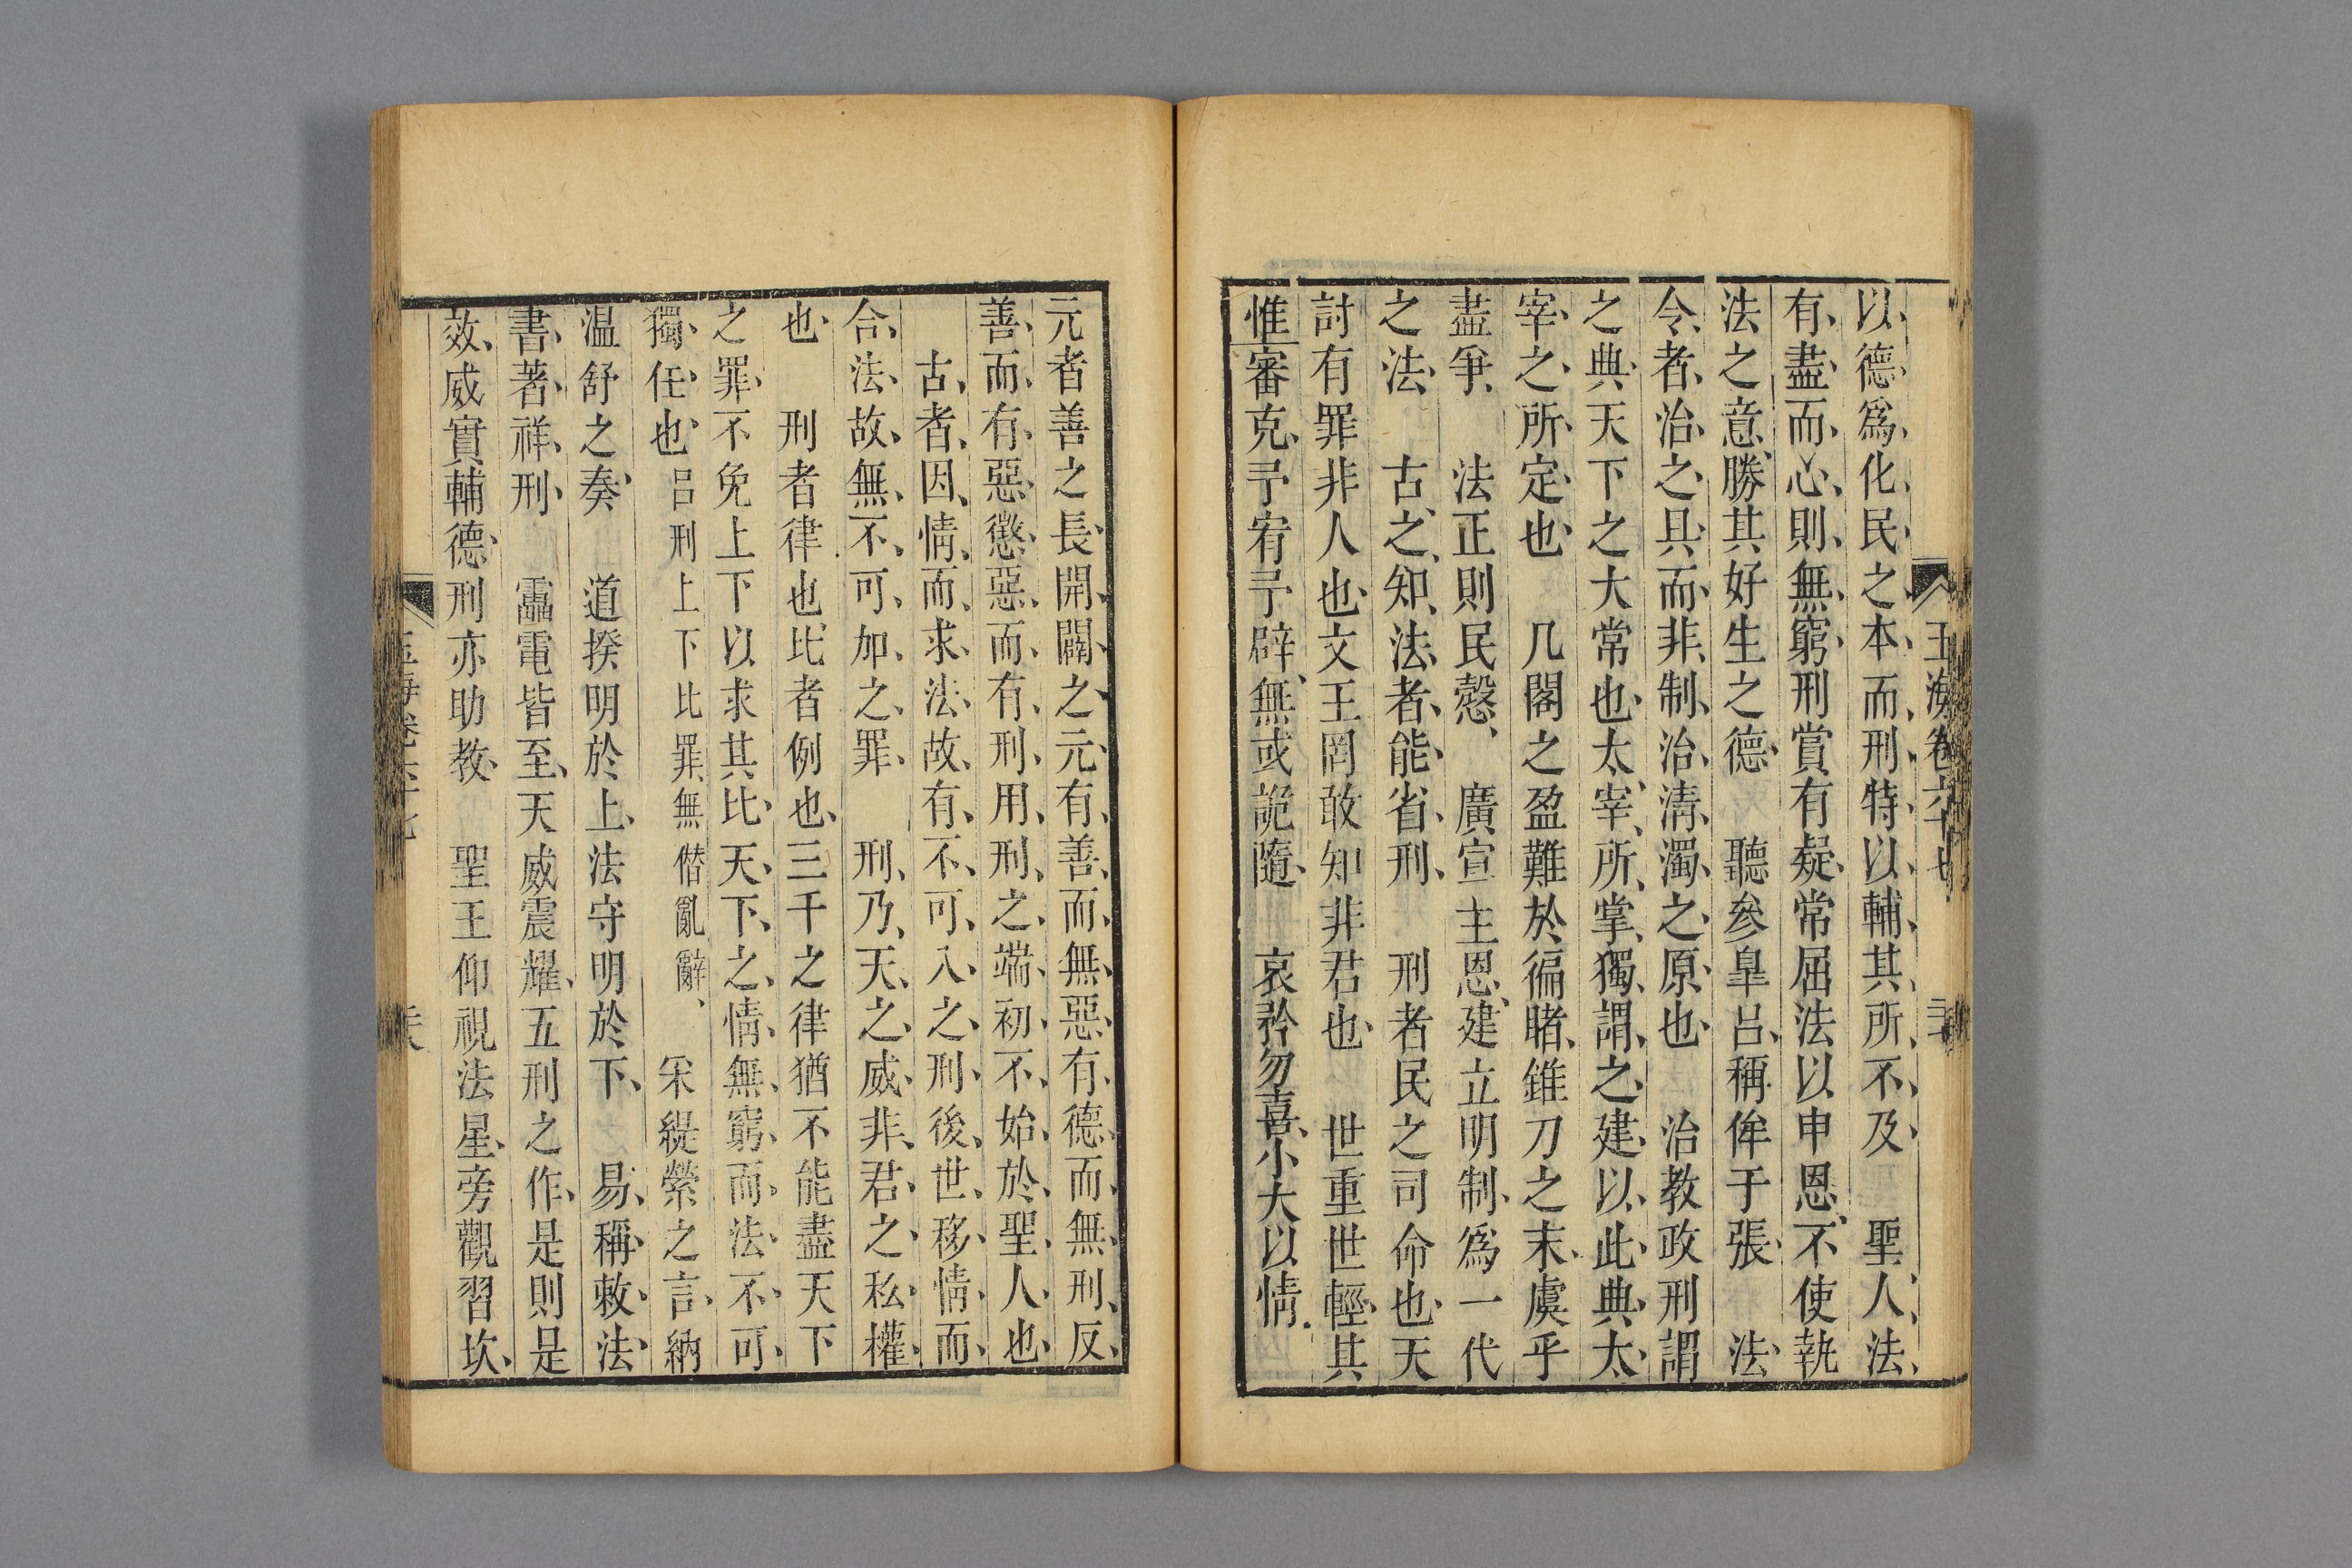 玉海卷六十七
以德爲化民之本而刑特以輔其所不及　聖人法
有盡而心則無窮刑賞有疑常屈法以申恩不使執
法之意勝其好生之德　聽參臯呂稱侔于張　法
令者治之具而非制治淸濁之原也　治教政刑謂
之典天下之大常也太宰所掌獨謂之建以此典太
宰之所定也　几閣之盈難於徧睹錐刀之末虞乎
盡爭　法正則民慤　廣宣主恩建立明制爲一代
之法　古之知法者能省刑　刑者民之司命也天
討有罪非人也文王罔敢知非君也　世重世輕其
惟審克予宥予辟無或詭隨　哀矜勿喜小大以情
元者善之長開闢之元有善而無惡有德而無刑反
善而有惡懲惡而有刑用刑之端初不始於聖人也
古者因情而求法故有不可入之刑後世移情而
合法故無不可加之罪　刑乃天之威非君之私權
也　刑者律也比者例也三千之律猶不能盡天下
之罪不免上下以求其比天下之情無窮而法不可
獨任也呂刑上下比罪無僭亂辭　采緹縈之言納
温舒之奏　道揆明於上法守明於下　易稱敕法
書著祥刑　靁電皆至天威震耀五刑之作是則是
效威實輔德刑亦助教　聖王仰視法星旁觀習坎